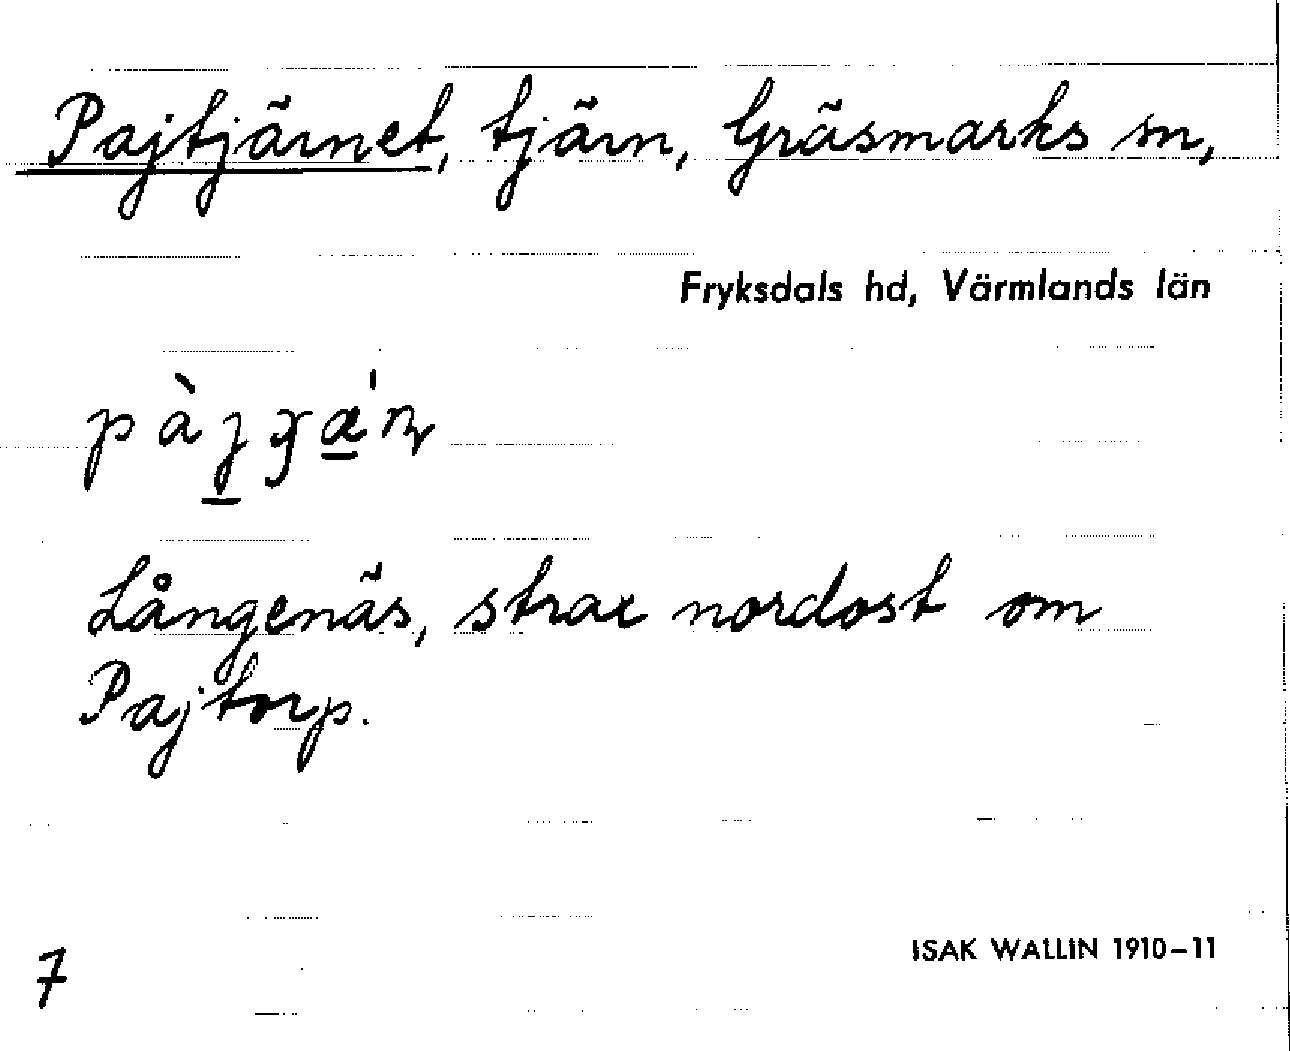 Pajtjärnet, tjärn, Gräsmarks sn,
Fryksdals hd, Värmlands län
Långenäs, strax nordost om
Pajtorp.
ISAK WALLIN 1910–11
7